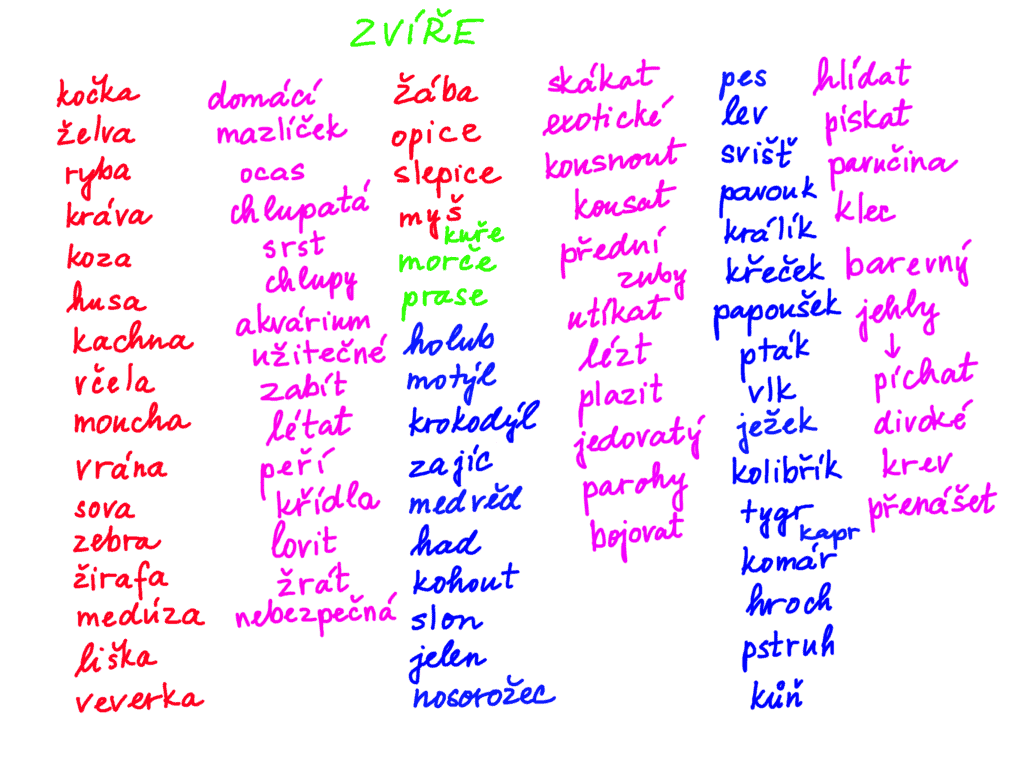 ZVÍŘE
kočka
želva
ryba
kráva
koza
husa
kachna
včela
moucha
vrána
sova
zebra
žirafa
medúza
liška
veverka
domácí
mazlíček
ocas
chlupatá
srst
chlupy
akvárium
užitečné
zabít
létat
peří
křídla
lovit
žrát
nebezpečná
žába
opice
slepice
myš
kuře
morče
prase
holub
motýl
krokodýl
zajíc
medvěd
had
kohout
slon
jelen
nosorožec
skákat
exotické
kousnout
kousat
přední
zuby
utíkat
lézt
plazit
jedovatý
parohy
bojovat
pes
lev
svišť
pavouk
králík
křeček
papoušek
pták
vlk
ježek
kolibřík
tygr
kapr
komár
hroch
pstruh
kůň
hlídat
pískat
pavučina
klec
barevný
jehly
↓
píchat
divoké
krev
přenášet